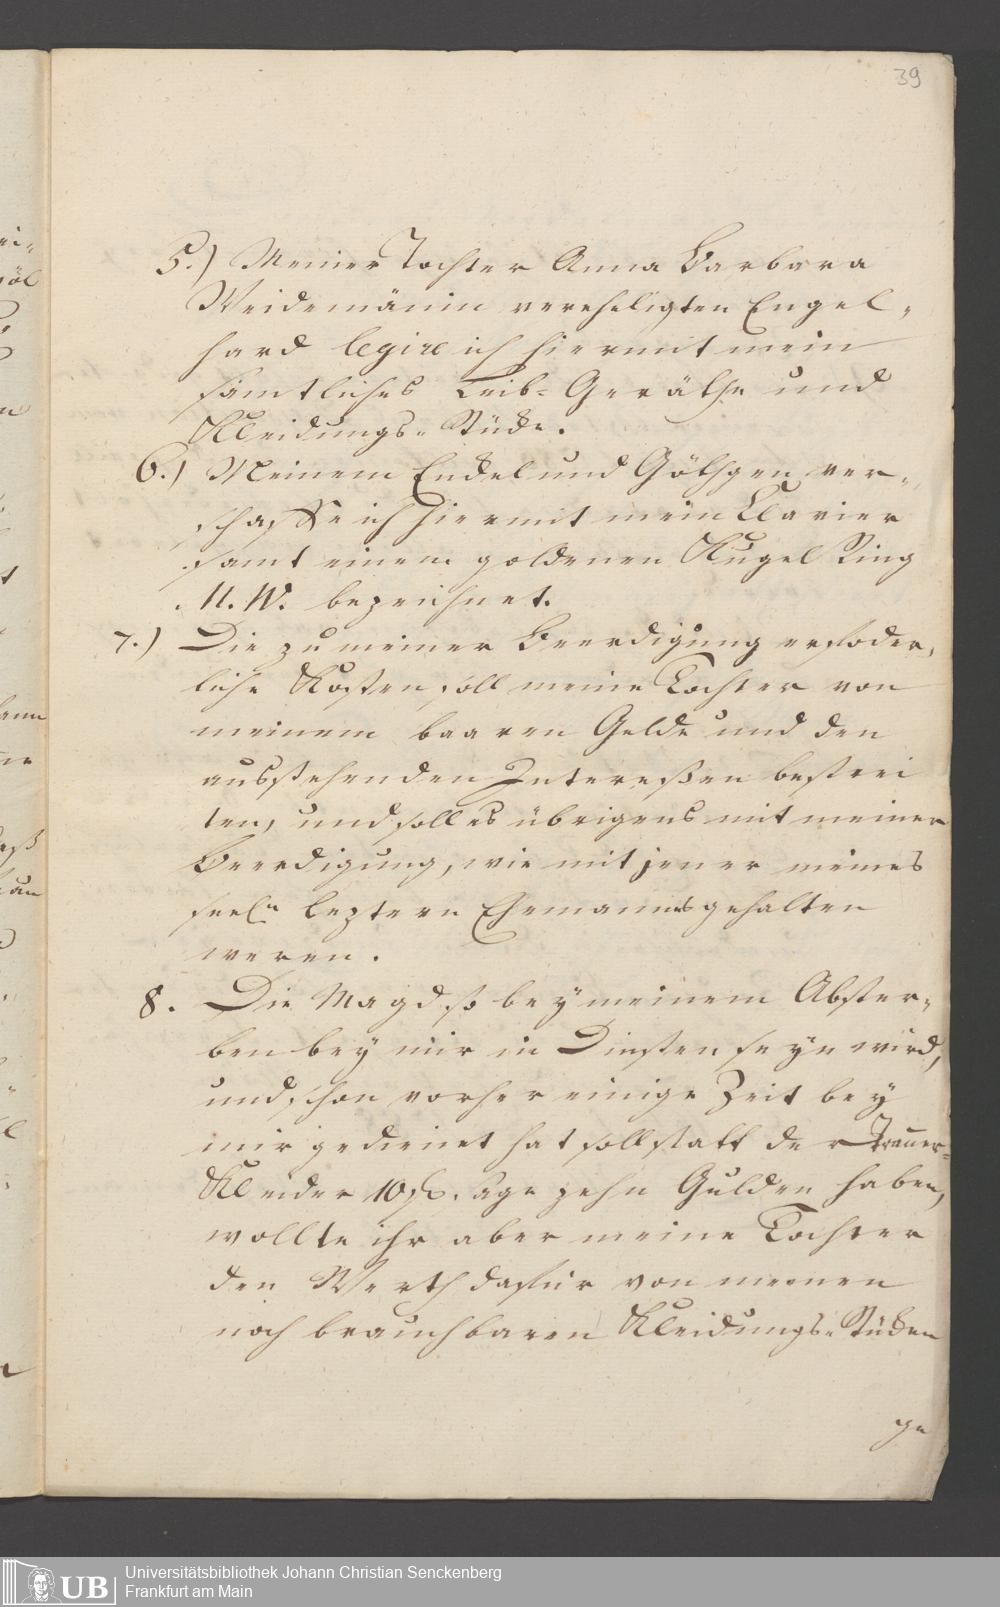 39
5.) Meiner Tochter Anna Barbara
Weidemänin vereheligten Engel-
hard legire ich hiermit mein
sämtliches Leib-Geräthe und
Kleidungs-Stücke.
6.) Meinem Enckel und Göthgen ver-
schaffe ich hiermit mein Clavier
samt einem goldenen Kugel Ring
M. W. bezeichnet.
7.) Die zu meiner Beerdigung erfoder-
liche Kosten, soll meine Tochter von
meinem baaren Gelde und den
ausstehenden Intereßen bestrei
ten, und soll es übrigens mit meiner
Beerdigung, wie mit jener meines
seeln leztern Ehemannes gehalten
weren.
8. Die Magd so bey meinem Abster-
ben bey mir in Diensten seyn wird,
und schon vorher einige Zeit bey
mir gedienet hat soll statt der Trauer-
Kleider 10 fl. sage zehn Gulden haben,
wollte ihr aber meine Tochter
den Werth dafür von meinen
noch brauchbaren Kleidungs-Stücken
ge
ann
UB
Universitätsbibliothek Johann Christian Senckenberg
Frankfurt am Main